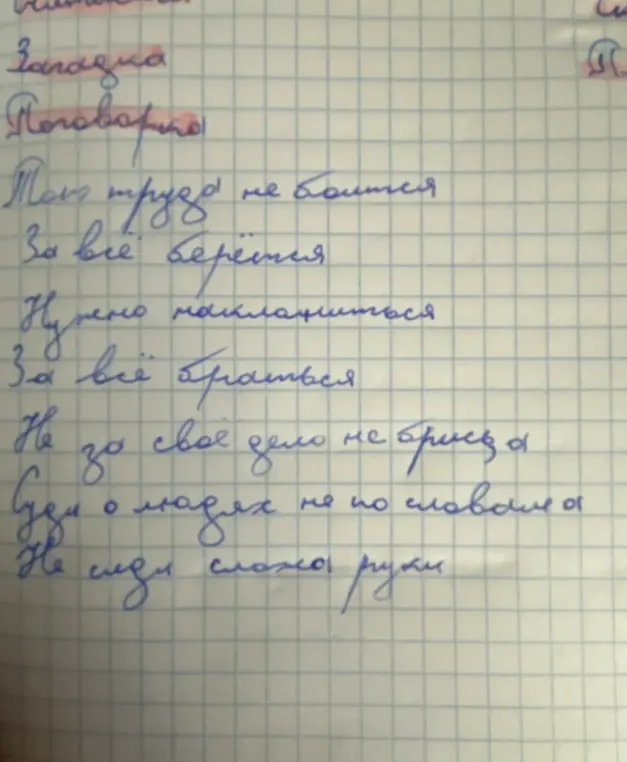 Загадка
П
Поговорка
труда не боится
За всё берётся
Нужно наклониться
За всё браться
Не за своё дело не бриса
Суди о людях не по словам а
Не сиди сложа руки